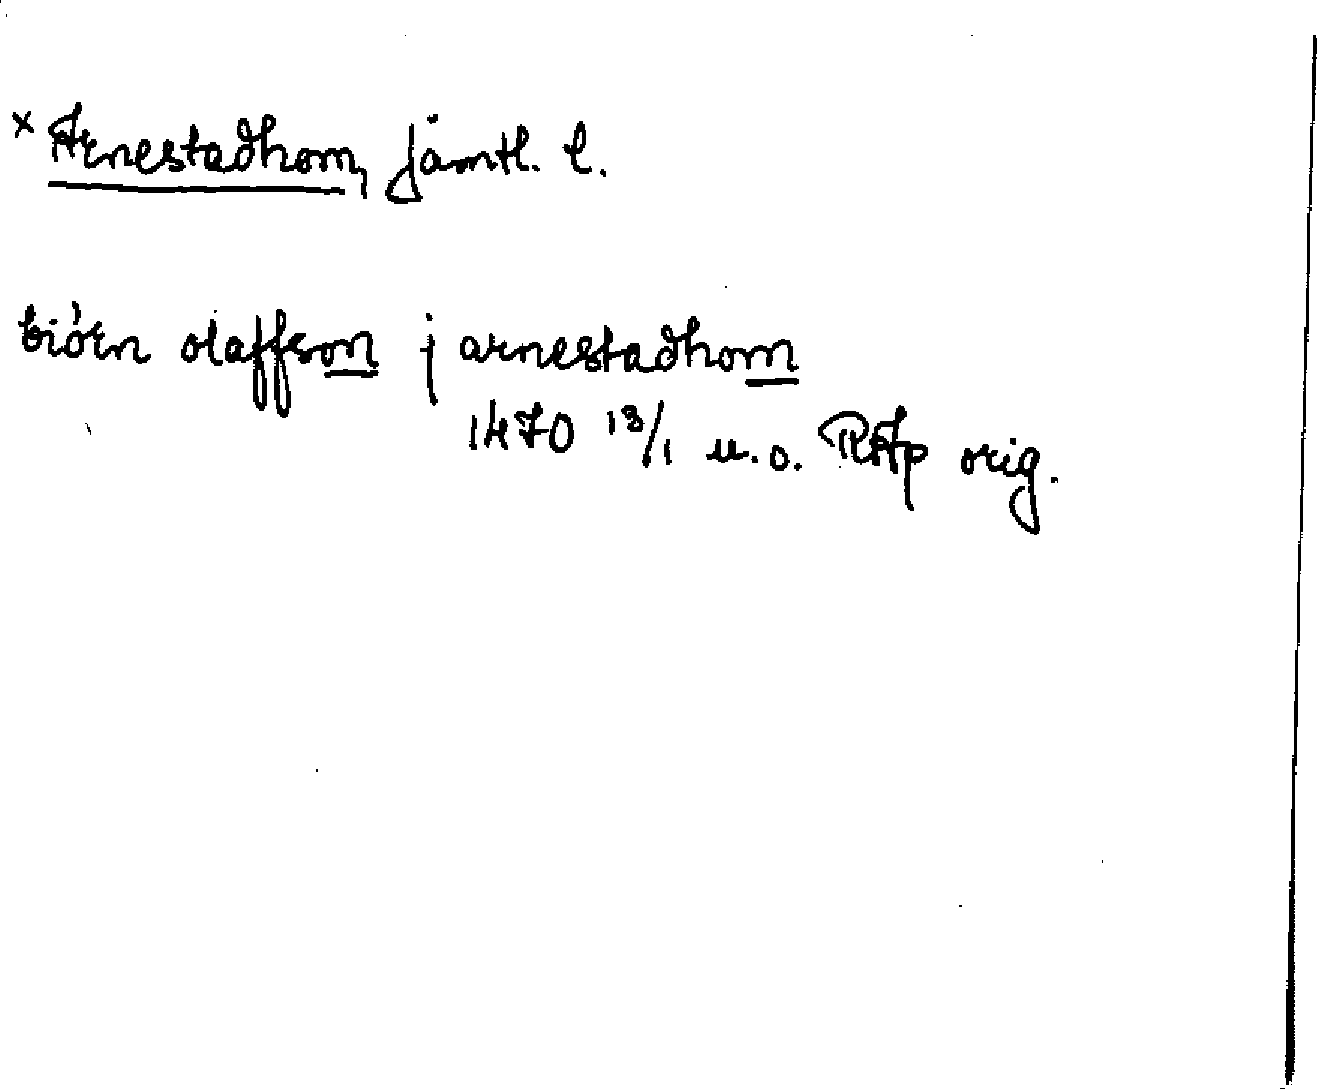 x Arnestadhom, Jämtl. l.
biórn olaffson j arnestadhom
1470 13/1 u.o. RAp orig.